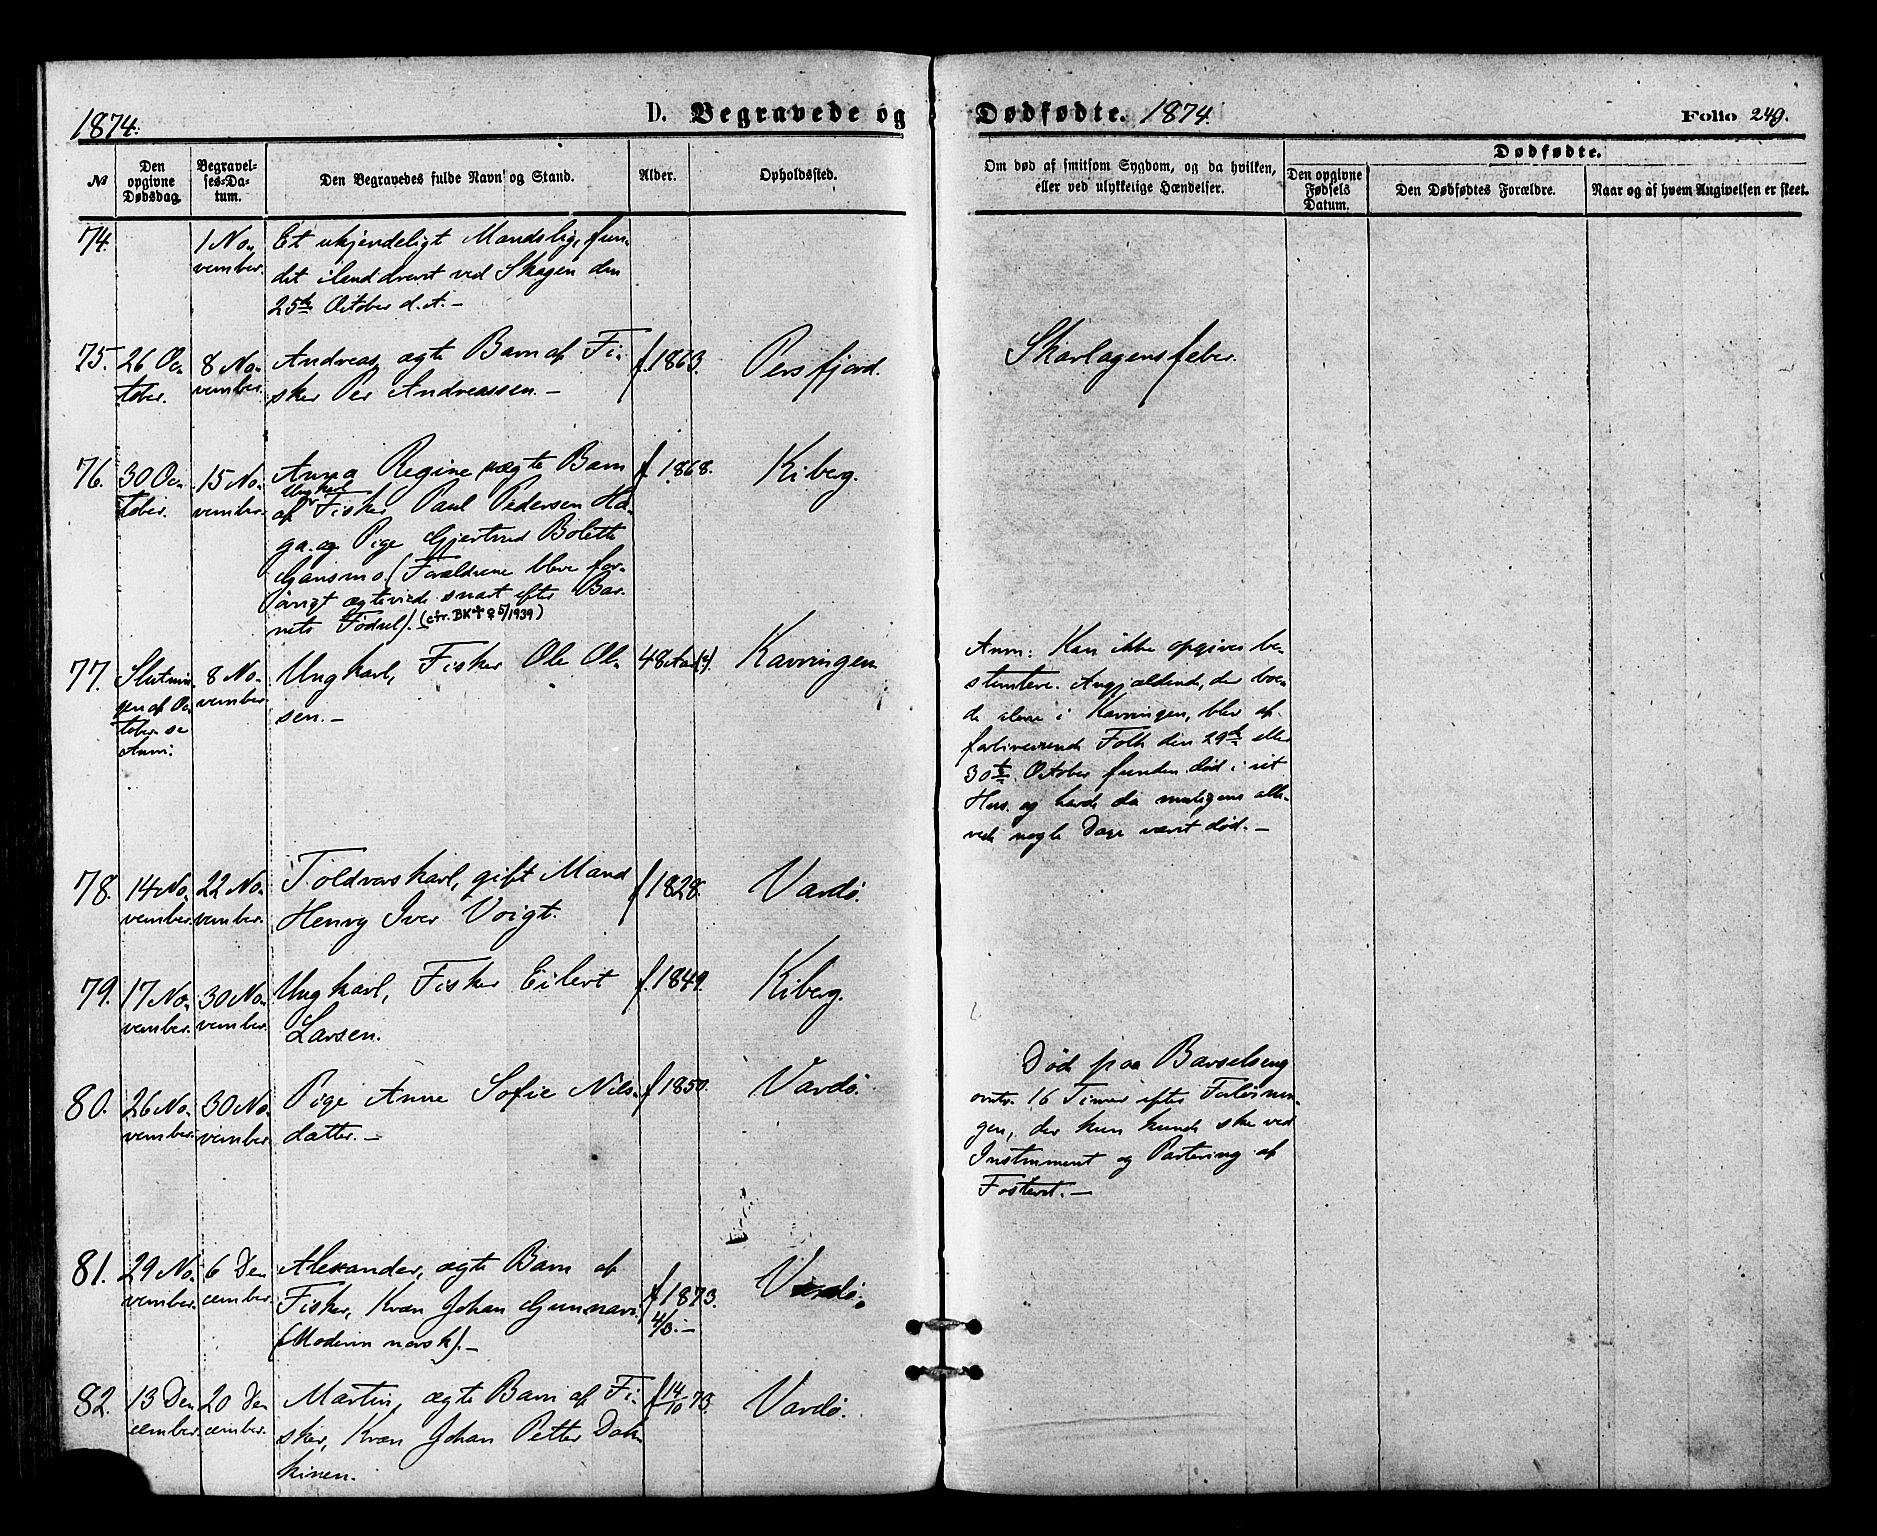 1874.
D. Begravede og
Dødfødte. 1874.
Folio 249.
№
Den opgivne Dødsdag.
Begravel-
ses-Da-
tum.
Den Begravedes fulde Navn og Stand.
Alder.
Opholdssted.
Om død af smitsom Sygdom, og da hvilken,
eller ved ulykkelige Hændelser.
Dødfødte.
Den opgivne
Fødsels
Datum.
Den Dødfødtes Forældre.
Naar og af hvem Angivelsen er skeet.
74.
1 No-
vember.
Et ukjendeligt Mandslig, fun-
det ilanddrevet ved Skagen den
25de October d. A. –
75.
26 Oc-
tober.
8 No-
vember.
Andreas, ægte Barn af Fi-
sker Per Andreassen. –
f. 1863.
Persfjord.
Skarlagensfeber.
76.
30 Oc-
tober.
15 No-
vember.
Anna Regine, uægte Barn
Ungkarl
af Fisker Paul Pedersen Ha-
ga og Pige Gjertrud Bolette
(Forældrene bleve for-
øvrigt ægteviede snart efter Bar-
nets Fødsel). (cfr. BK ♀ 5/1939)
f. 1868.
Kiberg.
77.
Slutnin-
gen af Oc-
tober se
Anm:
8 No-
vember.
Ungkarl, Fisker Ole Ol-
sen. –
48 Aar (?).
Kavringen
Anm: Kan ikke opgives be-
stemtere. Angjældende, der boe-
de alene i Kavringen, blev af
forbireisende Folk den 29de eller
30te October funden død i sit
Hus og havde da muligens alle-
rede nogle Dage været død. –
78.
14 No-
vember.
22 No-
vember.
Toldroerskarl, gift Mand
Henry Iver Voigt.
f 1828.
Vardø.
79.
17 No-
vember.
30 No-
vember.
Ungkarl, Fisker Eilert
Larsen.
f. 1849.
Kiberg.
80.
26 No-
vember.
30 No-
vember.
Pige Anne Sofie Nils-
datter. –
f 1850.
Vardø.
Død paa Barselseng
omtr. 16 Timer efter Forløsnin-
gen, der kun kunde ske ved
Instrument og Partering af
Fosteret. –
81.
29 No-
vember.
6 De-
cember.
Alexander, ægte Barn af
Fisker, Kvæn Johan Gunnari
(Moderen norsk). –
f 1873.
4/3. –
Vardø.
82.
13 De-
cember.
20 De-
cember.
Martin, ægte Barn af Fi-
sker, Kvæn Johan Petter Dak-
kinen.
f 14/10 73.
Vardø.